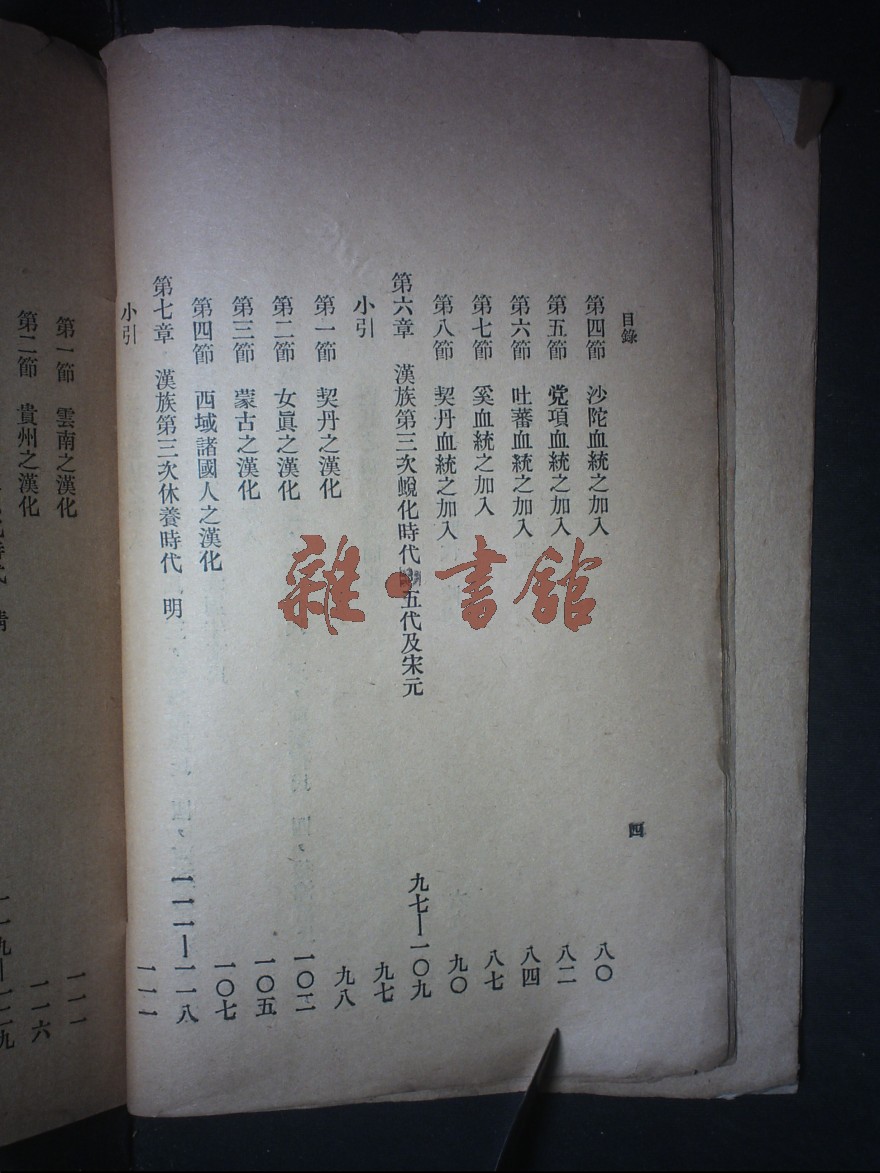 目錄
四
第四節 沙陀血統之加入 八〇
第五節 党項血統之加入 八二
第六節 吐蕃血統之加入 八四
第七節 奚血統之加入 八七
第八節 契丹血統之加入 九〇
第六章 漢族第三次蛻化時代 五代及宋元 九七—一〇九
小引 九七
第一節 契丹之漢化 九八
第二節 女眞之漢化 一〇二
第三節 蒙古之漢化 一〇五
第四節 西域諸國人之漢化 一〇七
第七章 漢族第三次休養時代 明 一一一—一一八
小引 一一一
第一節 雲南之漢化 一一一
第二節 貴州之漢化 一一六
時代 清 一一九—一二九
雜·書館